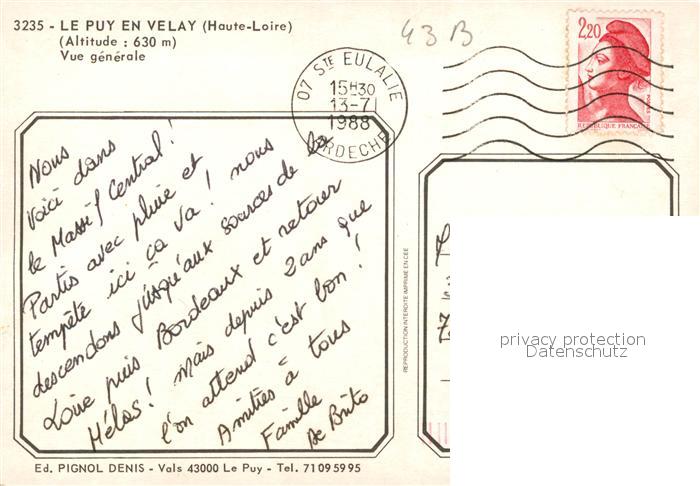 3235 - LE PUY EN VELAY (Haute-Loire)
(Altitude : 630 m)
Vue générale
43 B
07 STE EULALIE
15H30
13-7
1988
ARDECHE
2,20
POSTES
REPUBLIQUE FRANÇAISE
Nous
Voici dans
le Massif Central !
Partis avec pluie et
tempête ici ça va ! nous
descendons jusqu'aux sources de la
Loire puis Bordeaux et retour
Hélas ! Mais depuis 2 ans que
l'on attend c'est bon !
Amitiés à tous
Famille
De Brito
REPRODUCTION INTERDITE IMPRIME EN CEE
privacy protection
Datenschutz
Ed. PIGNOL DENIS - Vals 43000 Le Puy - Tel. 71095995